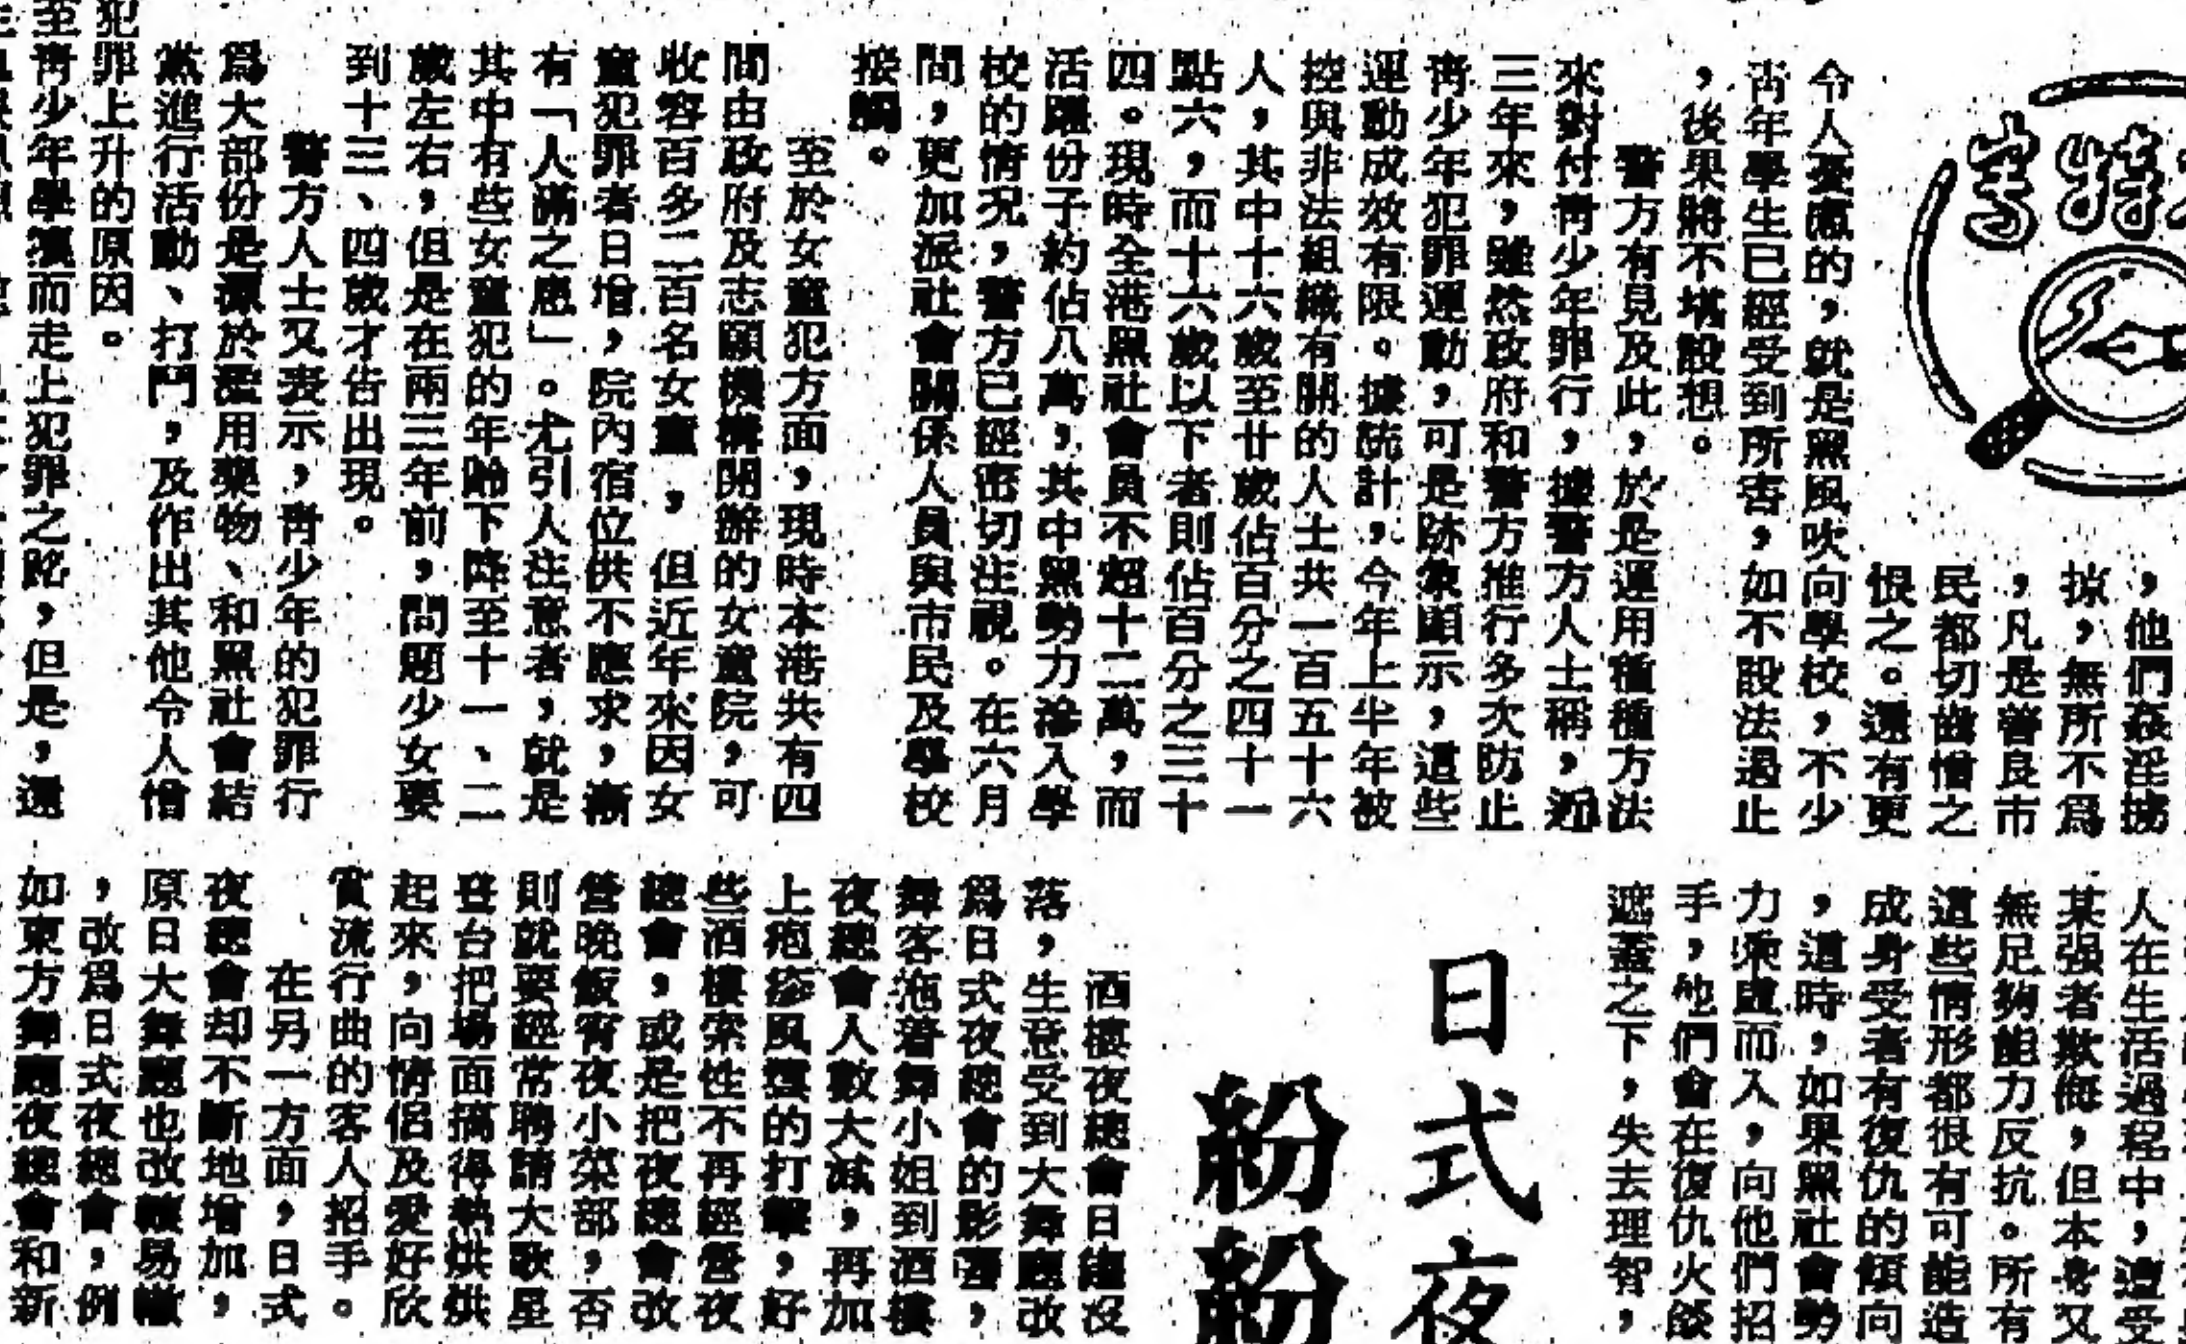 特寫
，他們姦淫擄
掠，無所不爲
，凡是善良市
民都切齒憎之
恨之。還有更
令人憂慮的，就是黑風吹向學校，不少
青年學生已經受到所害，如不設法遏止
，後果將不堪設想。
警方有見及此，於是運用種種方法
來對付青少年罪行，據警方人士稱，近
三年來，雖然政府和警方推行多次防止
青少年犯罪運動，可是跡象顯示，這些
運動成效有限。據統計，今年上半年被
控與非法組織有關的人士共一百五十六
人，其中十六歲至廿歲佔百分之四十一
點六，而十六歲以下者則佔百分之三十
四。現時全港黑社會員不超十二萬，而
活躍份子約佔八萬，其中黑勢力滲入學
校的情況，警方已經密切注視。在六月
間，更加派社會關係人員與市民及學校
接觸。
至於女童犯方面，現時本港共有四
間由政府及志願機構開辦的女童院，可
收容百多二百名女童，但近年來因女
童犯罪者日增，院內宿位供不應求，漸
有「人滿之患」。尤引人注意者，就是
其中有些女童犯的年齡下降至十一、二
歲左右，但是在兩三年前，問題少女要
到十三、四歲才告出現。
警方人士又表示，青少年的犯罪行
爲大部份是源於濫用藥物、和黑社會結
黨進行活動、打鬥，及作出其他令人憎
犯罪上升的原因。
至青少年學壞而走上犯罪之路，但是，還
人在生活過程中，遭受
某强者欺侮，但本身又
無足夠能力反抗。所有
這些情形都很有可能造
成身受者有復仇的傾向
，這時，如果黑社會勢
力乘虛而入，向他們招
手，他們會在復仇火燄
遮蓋之下，失去理智，
日式夜
紛紛
酒樓夜總會日趨沒
落，生意受到大舞廳改
爲日式夜總會的影響，
舞客拖着舞小姐到酒樓
夜總會人數大減，再加
上疱疹風雲的打擊，好
些酒樓索性不再經營夜
總會，或是把夜總會改
營晚飯宵夜小菜部，否
則就要經常聘請大歌星
登台把場面搞得熱烘烘
起來，向情侶及愛好欣
賞流行曲的客人招手。
在另一方面，日式
夜總會却不斷地增加，
原日大舞廳也改轅易轍
，改爲日式夜總會，例
如東方舞廳夜總會和新